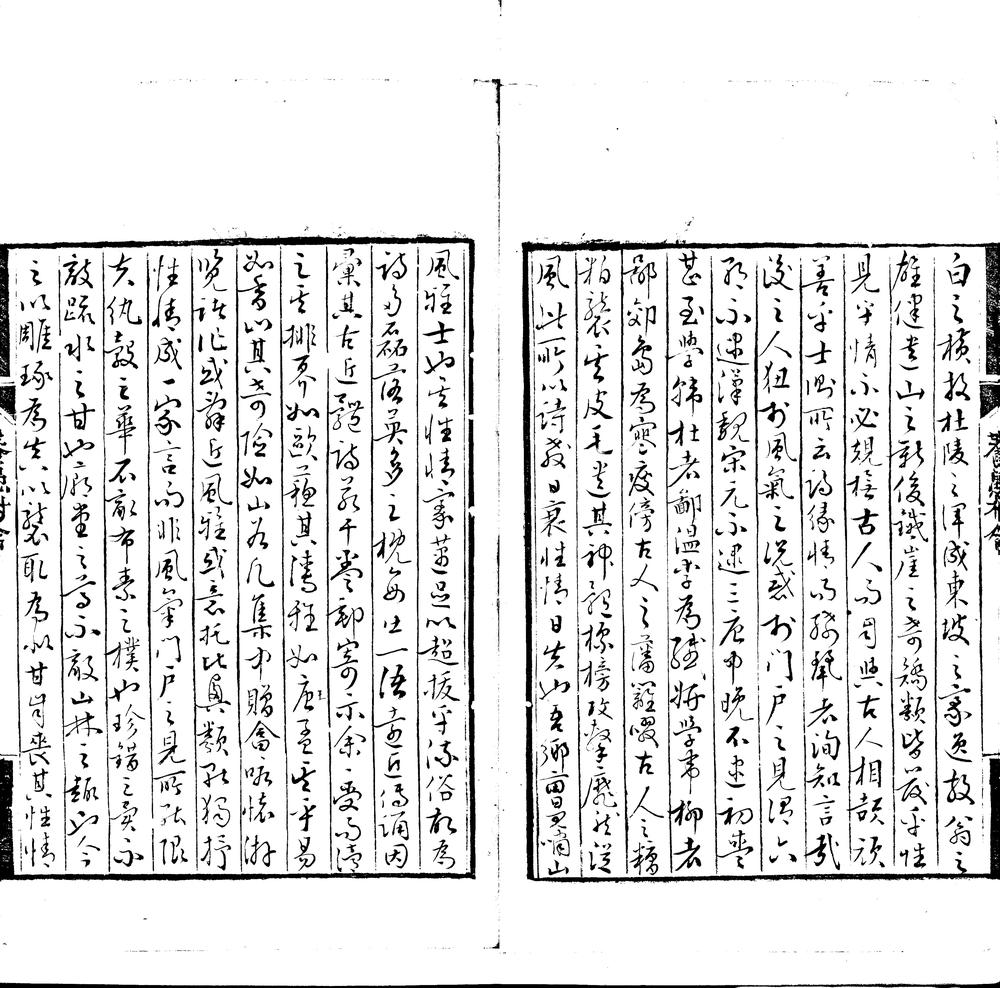 白之横放杜陵之渾成東坡之豪逸放翁之
雄健遺山之新俊鐵崖之奇矯類皆發乎性
見乎情不必規橅古人而自與古人相頡頏
善乎士衡所云詩緣情而綺靡者洵知言哉
後之人狃於風氣之說惑於門戶之見謂六
朝不逮漢魏宋元不逮三唐中晚不逮初盛
甚至學韓杜者鄙溫李為纖妍學韋柳者
鄙郊島為寒瘦傍古人之藩籬啜古人之糟
粕襲其皮毛遺其神髓標榜攻擊靡然從
風此所以詩教日衰性情日失也吾鄉 嘯山
風雅士也其性情豪邁足以超拔乎流俗故為
詩多磊落英多之概每出一語遠近傳誦因
彙其古近體詩若干卷郵寄示余受而讀
之其排奡如歐蘇其澹雅如 孟其平易
如香山其奇險如山谷凡集中贈會咏懷游
覽諸作或辭近風雅或意托比興類能獨抒
性情成一家言而非風氣門戶之見所能限
夫紈縠之華不敵布素之樸也珍錯之美不
敵疏水之甘也廊堂之高不敵山林之趣也今
之以雕琢為 以襲取為 甘 喪其性情